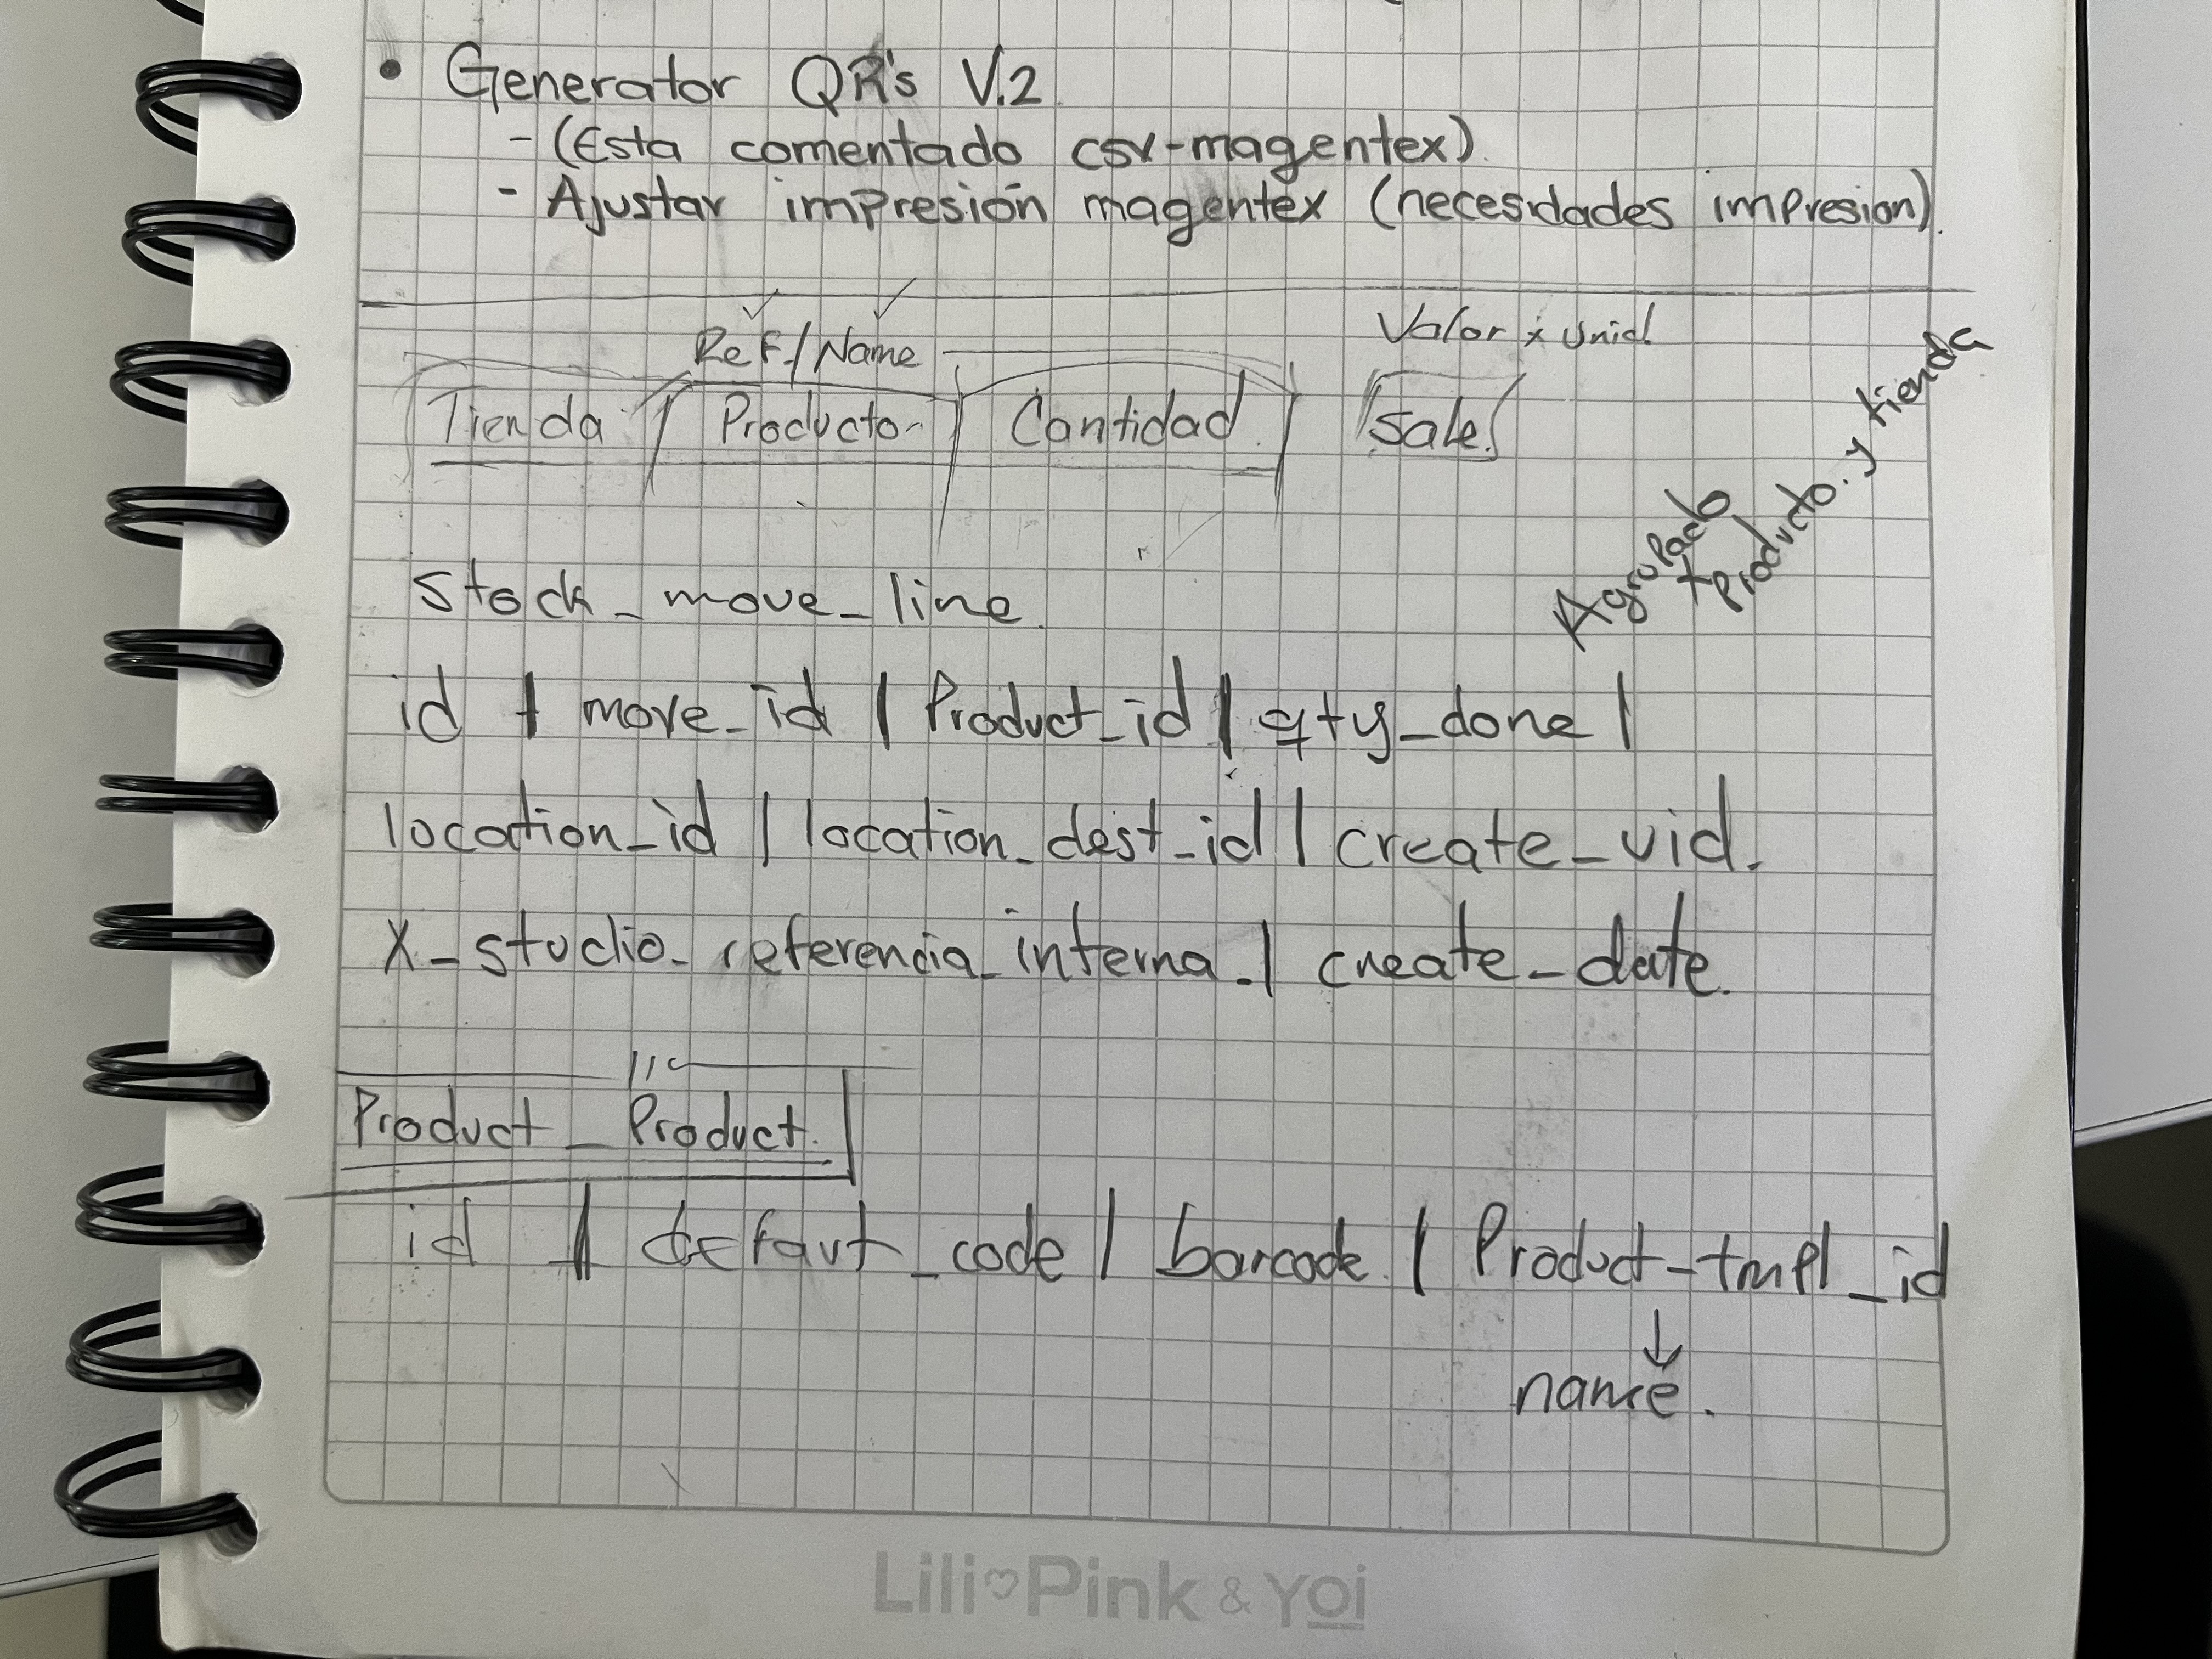 • Generator QR's V.2
- (Esta comentado csv-magentex).
- Ajustar impresión magentex (necesidades impresion).
Ref/Name
Valor x unid
Tienda | Producto | Cantidad | Sale
Agrupado
x Producto y tienda
Stock_move_line.
id | move_id | Product_id | qty_done |
location_id | location_dest_id | create_uid.
X_studio_referencia_interna_| create_date.
Product_Product.
id | defaut_code | barcode | Product_tmpl_id
↓
name.
Lili Pink & Yoi